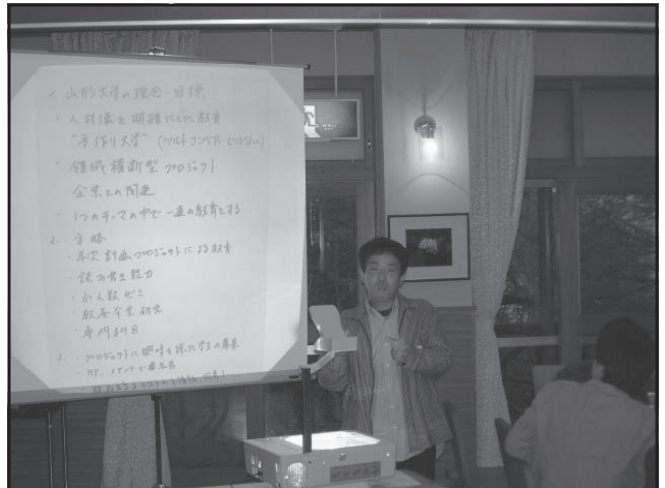 1. 山形大学の理念・目標
・人材像を明確にした教育
"手作り大学" (ベルトコンベア
・領域横断型プロジェクト
企業との関連
・1つのテーマの中で一連の教育をする
2. 方略
・年次計画、プロジェクトによる教育
・読み書き能力
・小人数ゼミ
・教養 研究
・専門科目
3. プロジェクトに興味を持た学生の募集
・HP, メディア